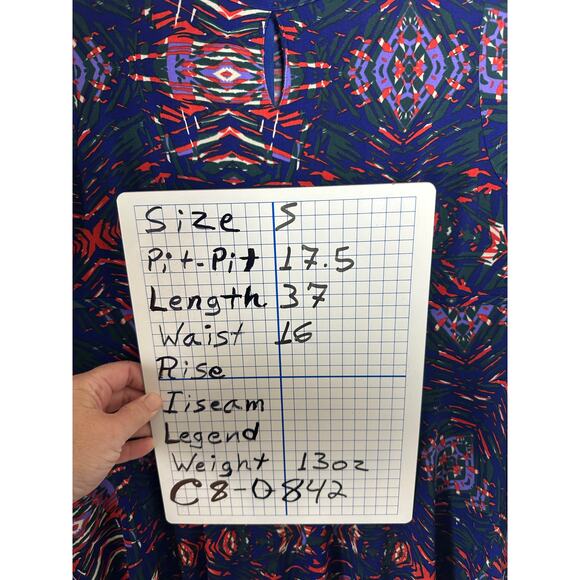 Size S
Pit-Pit 17.5
Length 37
Waist 16
Rise
Iiseam
Legend
Weight 13oz
C8-0842